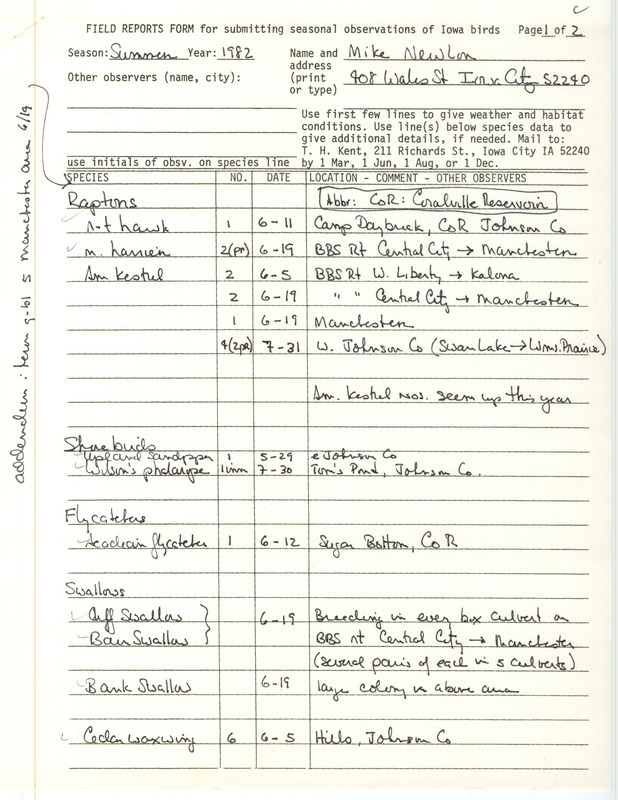 FIELD REPORTS FORM for submitting seasonal observations of Iowa birds Page 1 of 2
Season: Summer Year: 1982 Name and Mike Newlon
address
Other observers (name, city): (print 408 Wales St Iowa City 52240
or type)
Use first few lines to give weather and habitat
conditions. Use line(s) below species data to
give additional details, if needed. Mail to:
T. H. Kent, 211 Richards St., Iowa City IA 52240
use initials of obsv. on species line by 1 Mar, 1 Jun, 1 Aug, or 1 Dec.
SPECIES NO. DATE LOCATION - COMMENT - OTHER OBSERVERS
Raptors Abbr: CoR: Coralville Reservoir
r-t hawk 1 6-11 Camp Daybreak, CoR Johnson Co
m. harrier 2(pr) 6-19 BBS Rt Central City → Manchester
Am Kestrel 2 6-5 BBS Rt W. Liberty → Kalona
2 6-19 " " Central City → Manchester
1 6-19 Manchester
4(2pr) 7-31 W. Johnson Co (Swan Lake → Wms. Prairie)
Am. Kestrel nos. seem up this year
Shorebirds
Upland Sandpiper 1 5-29 e Johnson Co
Wilson's phalarope 1imm 7-30 Tom's Pond, Johnson Co.
Flycatchers
Acadian flycatcher 1 6-12 Sugar Bottom, CoR
Swallows
Cliff Swallow } 6-19 Breeding in every box culvert on
Barn Swallow } BBS rt Central City → Manchester
(several pairs of each in 5 culverts)
Bank Swallow 6-19 large colony in above area
Cedar waxwing 6 6-5 Hills, Johnson Co
addendum: 1 imm g-bl s Manchester area 6/19